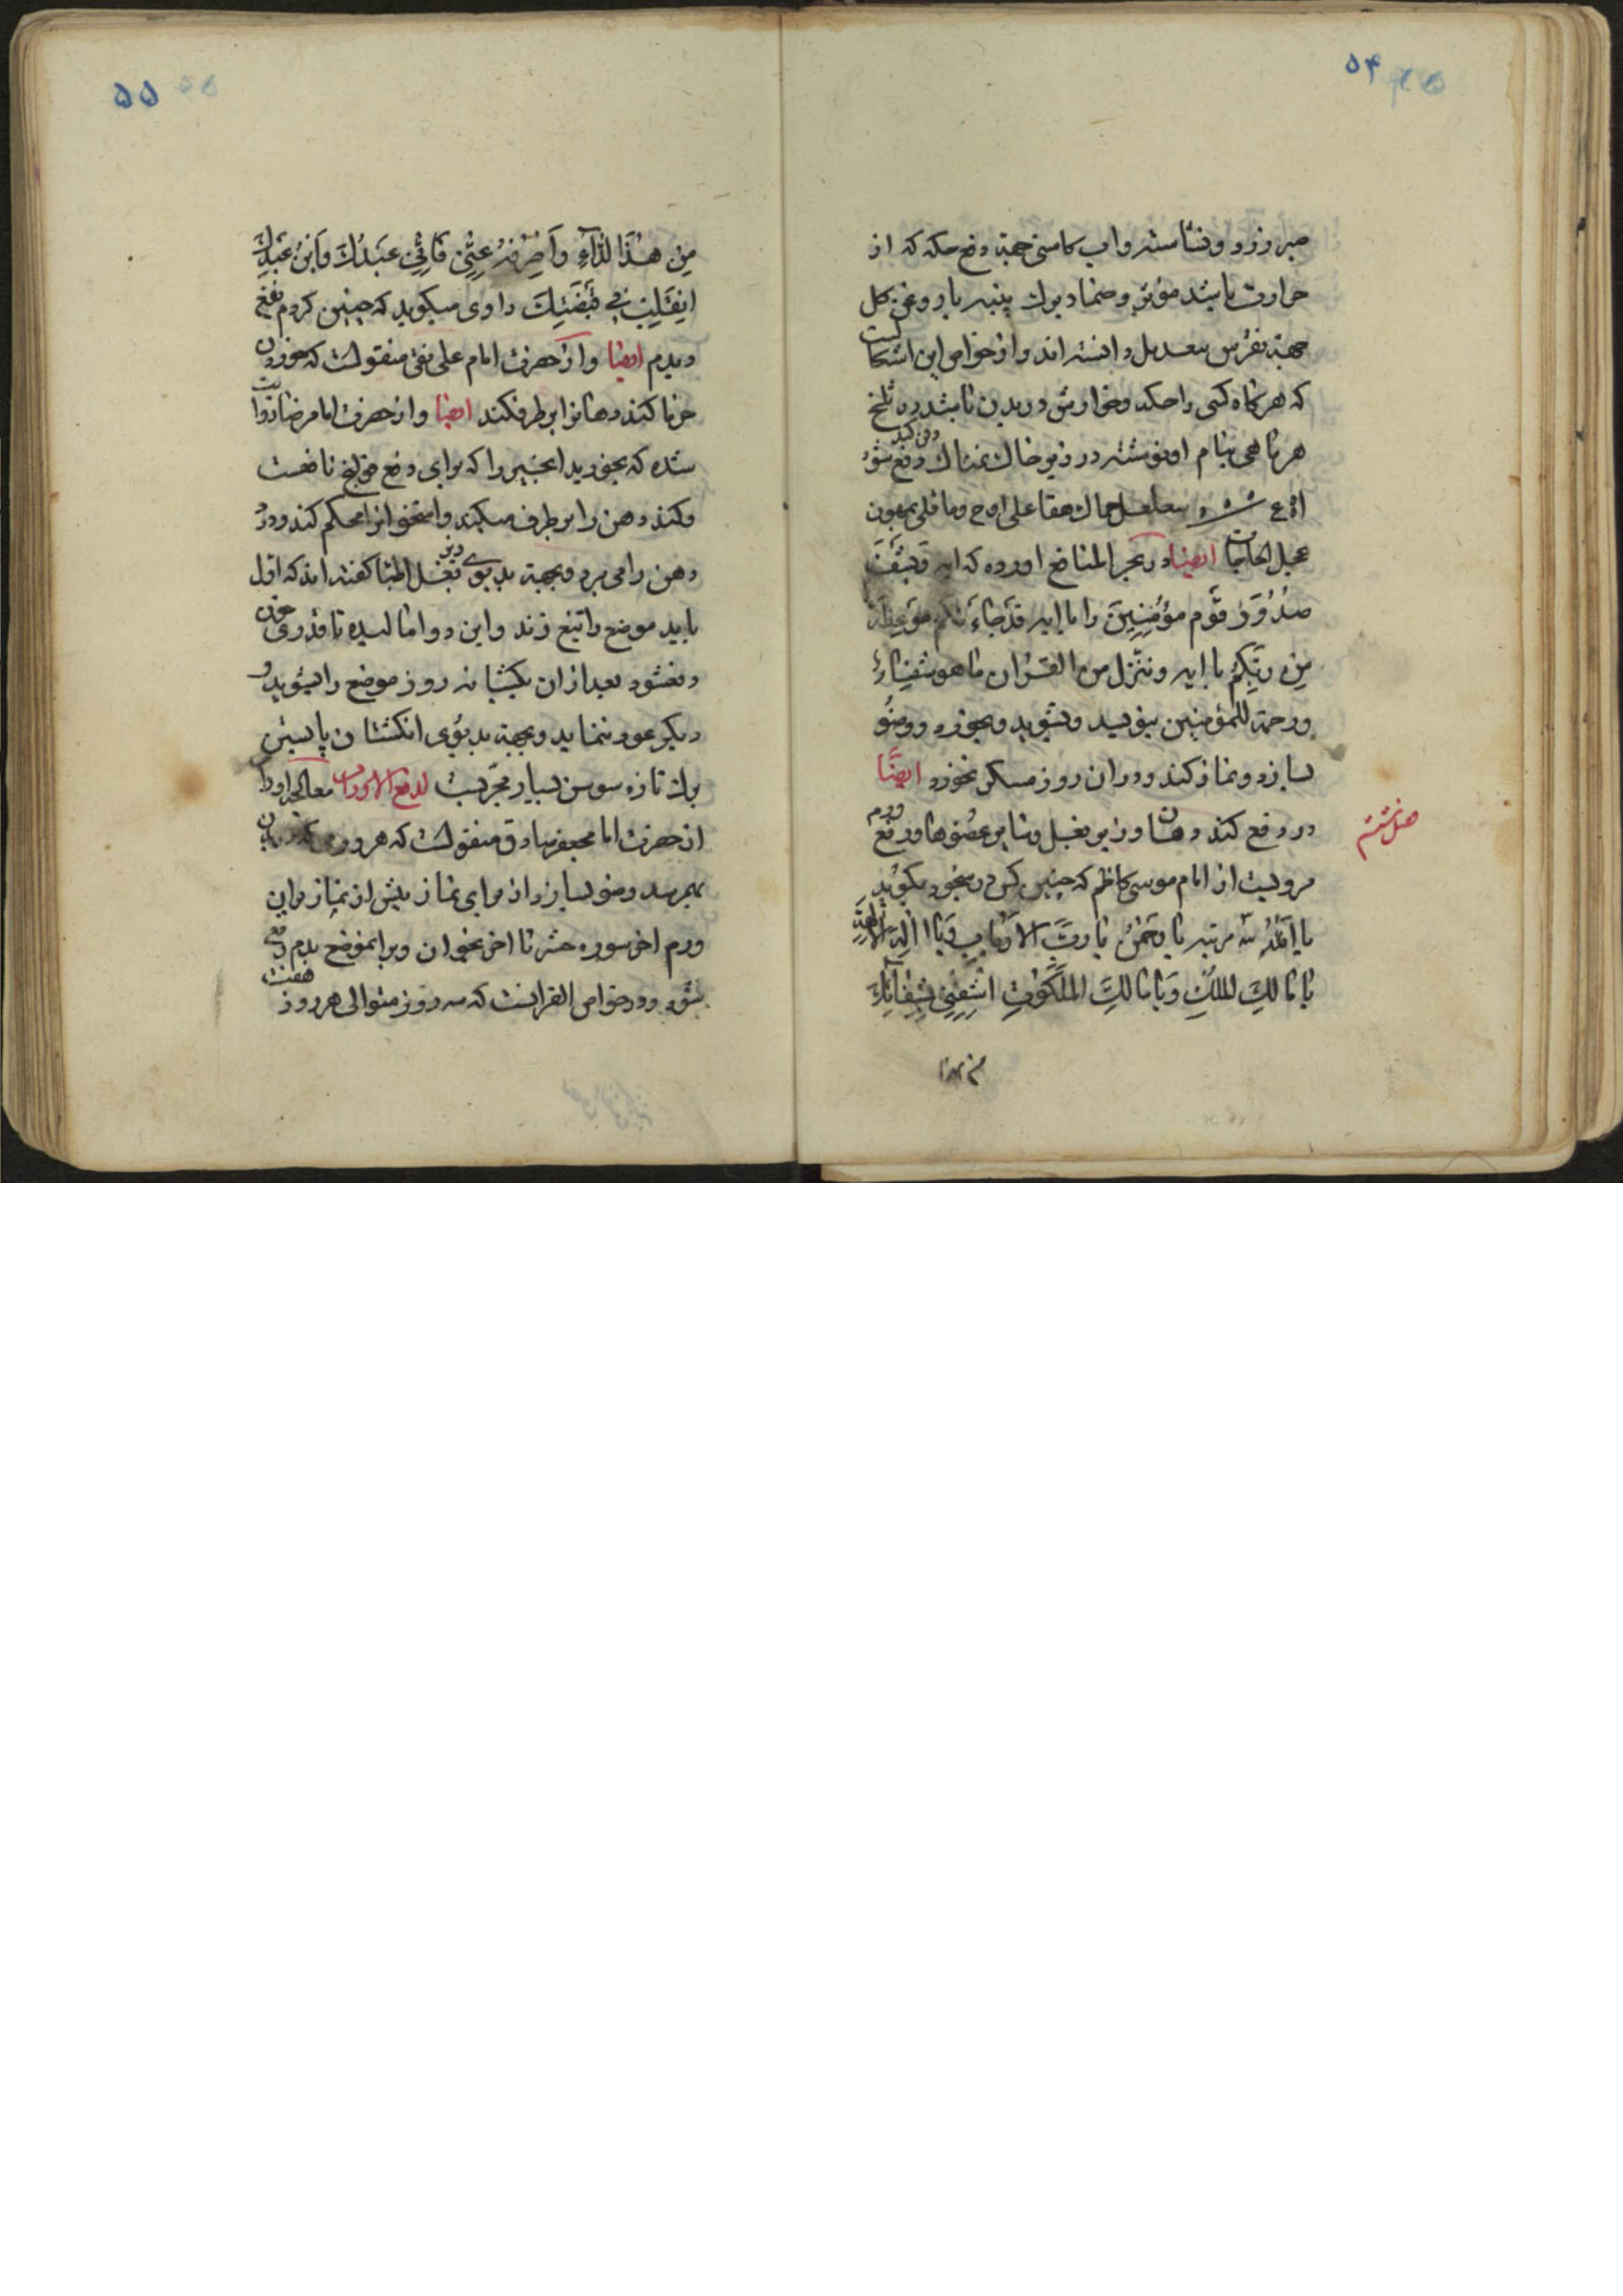 ۵۴
صبر زرد و نشاسته و اب کاسنی جهة دفع حکه که از
حرارت باشد مؤثر و ضماد برك پنبه با روغن کل
جهة نقرس بیعدیل دانسته اند و از خواص این اشکالست
که هرکاه کسی را حکه و خوارش در بدن باشد در
هر ماهی بنام او نوشته در زیر خاك نمناك دفن کند دفع شود
عجل الحاجات ایضا در بحر المنافع اورده که ایه وَیَشْفِ
صُدُورَ قَوْمٍ مُؤْمِنِینَ را با ایه قَدْ جَاءَتْکُمْ مَوْعِظَةٌ
مِنْ رَبِّکُمْ با ایه وننزل من القران ما هو شِفَاءٌ
ورحمة للمؤمنین بنویسد و بشوید و بخورد و وضو
بسازد و نماز کند و در ان روز مسکر نخورد ایضًا
درد دفع کند دهان و زیر بغل و سایر عضوها و رفع ورم
مرویست از امام موسی کاظم که چنین کس در سجود بکوید
یا اَللّٰهُ سه مرتبه یا رَحْمٰنُ یَا رَبَّ الْاَرْبَابِ وَیَا اِلٰهَ الْاٰلِهَةِ
یَا مَالِكَ الْمُلْكِ وَیَا مَالِكَ الْمَلَکُوتِ اشْفِنِی بِشِفَائِكَ
من هذا
۵۵
مِن هٰذَا الدَّاءِ وَاَصْرِفْهُ عَنِّی فَاِنِّی عَبْدُكَ وَابْنُ عَبْدِكَ
اَنْقَلِبُ فِی قَبْضَتِكَ راوی میکوید که چنین کردم نفع
دیدم ایضا و از حضرت امام علی نقی منقولست که خوردن
خرما کند دهانرا برطرف کند ایضا و از حضرت امام رضا روایت
شده که بخورید انجیر را که برای دفع قولنج نافعست
و کند دهن را برطرف میکند و استخوانرا محکم کند و درد
دهن را می برد و بجهة بدبوی زیر بغل اطبا کفته اند که اول
باید موضع را تیغ زند و این دوا مالیده تا قدری خون
دفع شود بعد از ان یکشبانه روز موضع را بشوید و
دیکر عود ننماید و بجهة بدبوی انکشتان پا بستن
برك تازه سوسن بسیار مجربست لدفع الاورام معالجه اورام
از حضرت امام جعفر صادق منقولست که هر ورمی که در بدن
بهمرسد وضو بسازد از برای نماز پیش از نماز بر این
ورم اخر سوره حشر تا اخر بخوان و بر انموضع بدم دفع
شود و در خواص القرانست که سه روز متوالی هر روز هفت